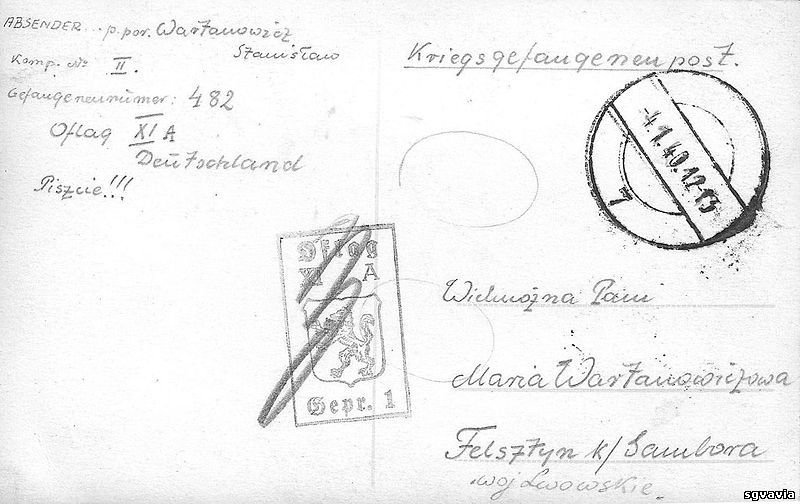 ABSENDER .. p. por. Wartanowicz
Stanisław
Komp. № II.
Gefangenennumer: 482
Oflag XI A
Deutschland
Piszcie!!!
Kriegsgefangenenpost.
-4.1.40.12-13
7
Oflag
XI A
Gepr. 1
Wielmożna Pani
Maria Wartanowiczowa
Felsztyn k/ Sambora
woj Lwowskie.
sgvavia